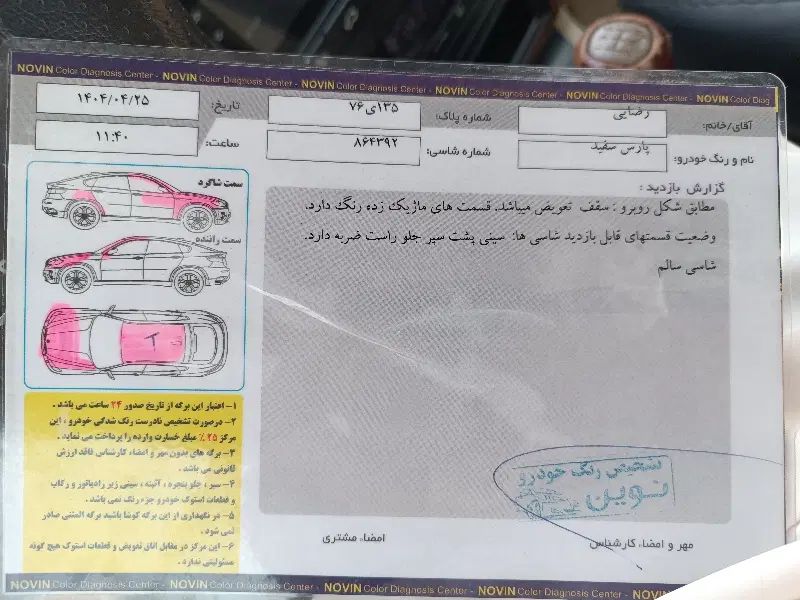 NOVIN Color Diagnosis Center - NOVIN Color Diagnosis Center - NOVIN Color Diagnosis Center - NOVIN Color Diagnosis Center - NOVIN Color Diagnosis Center - NOVIN Color Diag
آقای/خانم: رضایی
شماره پلاک: ۱۳۵ی۷۶
تاریخ: ۱۴۰۴/۰۴/۲۵
نام و رنگ خودرو: پارس سفید
شماره شاسی: ۸۶۴۳۹۲
ساعت: ۱۱:۴۰
گزارش بازدید:
مطابق شکل روبرو : سقف تعویض میباشد. قسمت های ماژیک زده رنگ دارد.
وضعیت قسمتهای قابل بازدید شاسی ها: سینی پشت سپر جلو راست ضربه دارد.
شاسی سالم
سمت شاگرد
سمت راننده
T
۱- اعتبار این برگه از تاریخ صدور ۲۴ ساعت می باشد .
۲- درصورت تشخیص نادرست رنگ شدگی خودرو ، این
مرکز ۲۵ ٪ مبلغ خسارت وارده را پرداخت می نماید .
۳- برگه های بدون مهر و امضاء کارشناس فاقد ارزش
قانونی می باشد .
۴- سپر ، جلو پنجره ، آئینه ، سینی زیر رادیاتور و رکاب
و قطعات استوک خودرو جزء رنگ نمی باشد .
۵- در نگهداری از این برگه کوشا باشید برگه المثنی صادر
نمی شود .
۶- این مرکز در مقابل اتاق تعویض و قطعات استوک هیچ گونه
مسئولیتی ندارد .
تشخیص رنگ خودرو
نوین
مهر و امضاء کارشناس
امضاء مشتری
NOVIN Color Diagnosis Center - NOVIN Color Diagnosis Center - NOVIN Color Diagnosis Center - NOVIN Color Diagnosis Center - NOVIN